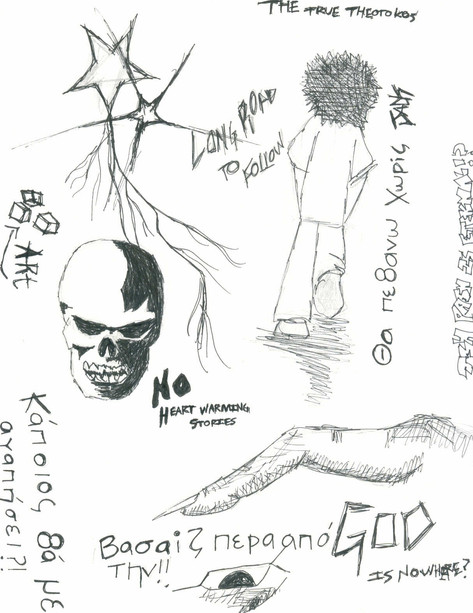 THE TRUE THEOTOKOS
LONG ROAD
TO FOLLOW
Θα πεθανω χωρίς
ART
NO
HEART WARMING
STORIES
Κάποιος θά με
αγαπήσει?!!
Βασαιζ περααπό
την!!
GOD
IS NOWHERE?